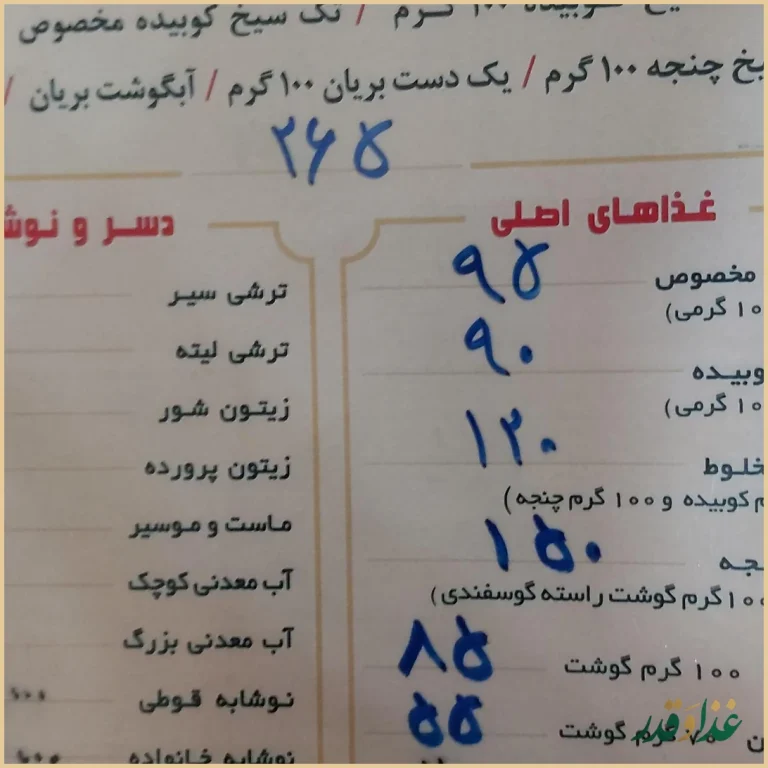 کوبیده ۱۰۰ گرم / تک سیخ کوبیده مخصوص
چنجه ۱۰۰ گرم / یک دست بریان ۱۰۰ گرم / آبگوشت بریان /
۲۶۵
غذاهای اصلی
مخصوص ۹۵
گرمی)
۹۰
گرمی)
۱۲۰
کوبیده و ۱۰۰ گرم چنجه)
۱۵۰
۱۰۰ گرم گوشت راسته گوسفندی)
۱۰۰ گرم گوشت ۸۵
۷۰ گرم گوشت ۵۵
دسر و
ترشی سیر
ترشی لیته
زیتون شور
زیتون پرورده
ماست و موسیر
آب معدنی کوچک
آب معدنی بزرگ
نوشابه قوطی
نوشابه خانواده
غذا و قدر